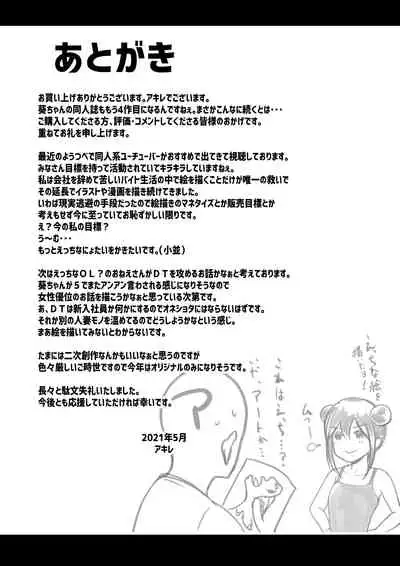 あとがき
お買い上げありがとうございます。アキレでございます。
葵ちゃんの同人誌ももう4作目になるんですねぇ。まさかこんなに続くとは・・・
ご購入してくださる方、評価・コメントしてくださる皆様のおかげです。
重ねてお礼を申し上げます。
最近のようつべで同人系ユーチューバーがおすすめで出てきて視聴しております。
みなさん目標を持って活動されていてキラキラしていますねぇ。
私は会社を辞めて苦しいバイト生活の中で絵を描くことだけが唯一の救いで
その延長でイラストや漫画を描き続けてきました。
いわば現実逃避の手段だったので絵描きのマネタイズとか販売目標とか
考えもせず今に至っていてお恥ずかしい限りです。
え?今の私の目標?
う~む・・・
もっとえっちなにょたいをかきたいです。(小並)
次はえっちなOL?のおねえさんがDTを攻めるお話かなぁと考えております。
葵ちゃんが5でまたアンアン言わされる感じになりそうなので
女性優位のお話を描こうかなぁと思っている次第です。
あ、DTは新入社員か何かにするのでオネショタにはならないはずです。
それか別の人妻モノを温めてるのでどうしようかなという感じ。
まあ絵を描いてみないとわからないです。
たまには二次創作なんかもいいなぁと思うのですが
色々厳しいご時世ですので今年はオリジナルのみになりそうです。
長々と駄文失礼いたしました。
今後とも応援していただければ幸いです。
2021年5月
アキレ
ア
これはえっち…?
いや、アートか…
えっちな絵を
描くな!
ムッー